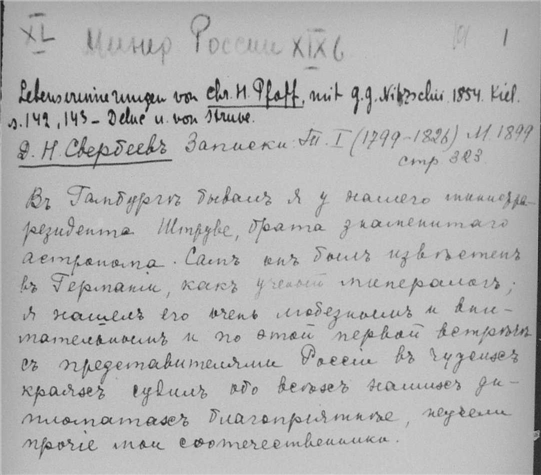 XL Минер России XIX в 1
Lebenserinnerungen von Chr. H. Pfaff, mit g.g. Nitzschir. 1854. Kiel.
s. 142, 143 – Deluc u. von Struve.
Д. Н. Свербеевъ Записки. Т. I (1799–1826) М. 1899
стр 323.
Въ Гамбургѣ бывалъ я у нашего министра-
резидента Штруве, брата знаменитаго
астронома. Самъ онъ былъ извѣстенъ
въ Германіи, какъ ученый минералогъ;
я нашелъ его очень любезнымъ и вни-
мательнымъ и по этой первой встрѣчѣ
съ представителями Россіи въ чужихъ
краяхъ судилъ обо всѣхъ нашихъ ди-
пломатахъ благопріятнѣе, нежели
прочіе мои соотечественники.